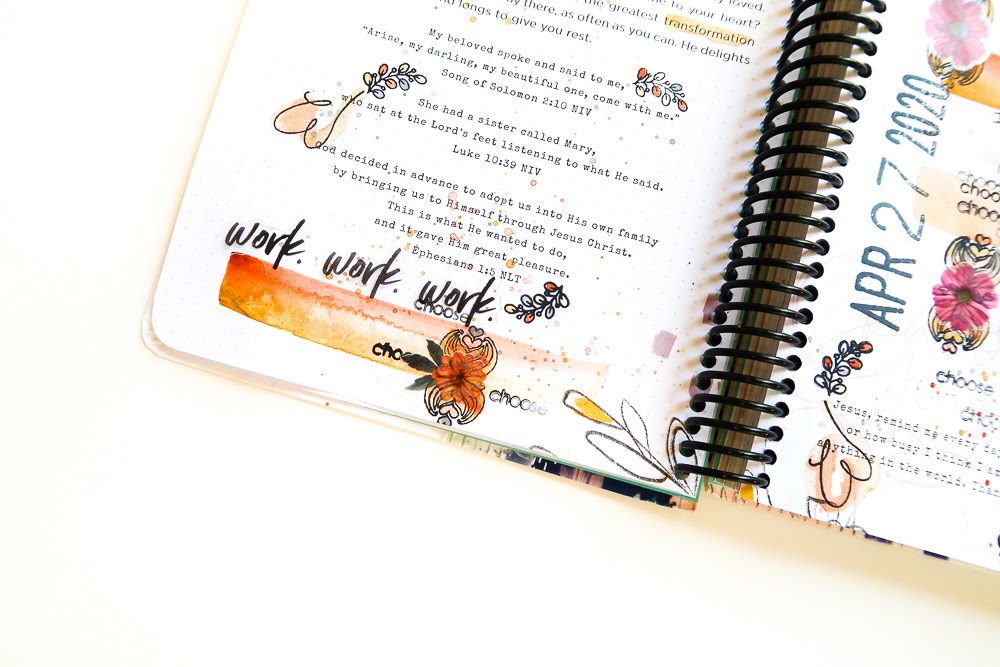 y loved.
me to your heart?
y there, as often as you can. He delights
the greatest transformation
nd longs to give you rest.
My beloved spoke and said to me,
"Arise, my darling, my beautiful one, come with me."
Song of Solomon 2:10 NIV
She had a sister called Mary,
who sat at the Lord's feet listening to what He said.
Luke 10:39 NIV
God decided in advance to adopt us into His own family
by bringing us to Himself through Jesus Christ.
This is what He wanted to do,
and it gave Him great pleasure.
Ephesians 1:5 NLT
work. work. work.
choose
choo
choose
APR 27 2020
choose
choose
choose
choose
choo
Jesus, remind me every da
or how busy I think I a
anything in the world. Than